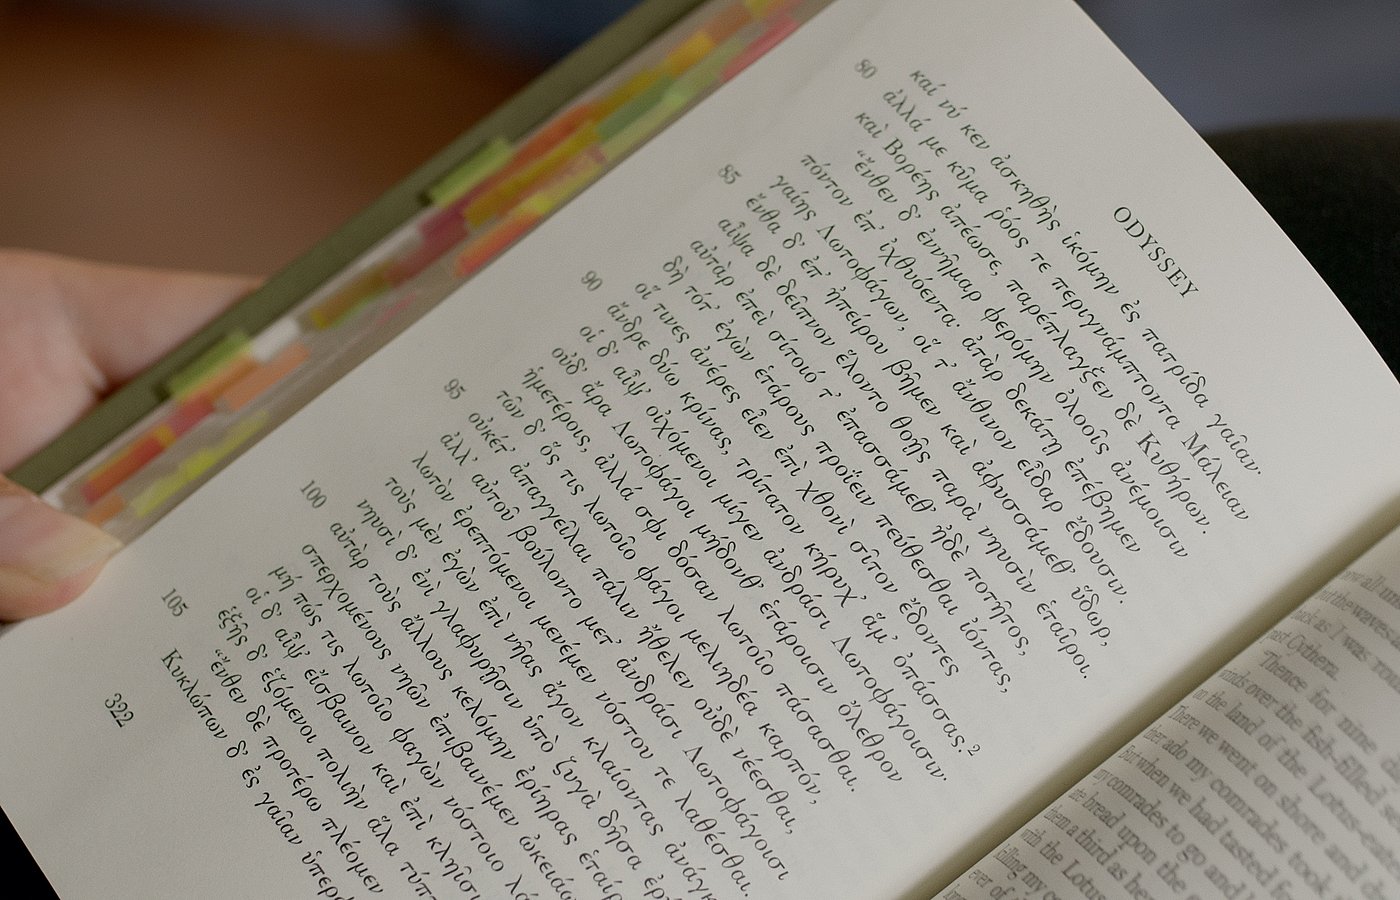 ODYSSEY
καί νύ κεν ἀσκηθὴς ἱκόμην ἐς πατρίδα γαῖαν·
80 ἀλλά με κῦμα ῥόος τε περιγνάμπτοντα Μάλειαν
καὶ Βορέης ἀπέωσε, παρέπλαγξεν δὲ Κυθήρων.
“ἔνθεν δ᾽ ἐννῆμαρ φερόμην ὀλοοῖς ἀνέμοισιν
πόντον ἐπ᾽ ἰχθυόεντα· ἀτὰρ δεκάτῃ ἐπέβημεν
γαίης Λωτοφάγων, οἵ τ᾽ ἄνθινον εἶδαρ ἔδουσιν.
85 ἔνθα δ᾽ ἐπ᾽ ἠπείρου βῆμεν καὶ ἀφυσσάμεθ᾽ ὕδωρ,
αἶψα δὲ δεῖπνον ἕλοντο θοῇς παρὰ νηυσὶν ἑταῖροι.
αὐτὰρ ἐπεὶ σίτοιό τ᾽ ἐπασσάμεθ᾽ ἠδὲ ποτῆτος,
δὴ τότ᾽ ἐγὼν ἑτάρους προΐειν πεύθεσθαι ἰόντας,
οἵ τινες ἀνέρες εἶεν ἐπὶ χθονὶ σῖτον ἔδοντες
90 ἄνδρε δύω κρίνας, τρίτατον κήρυχ᾽ ἅμ᾽ ὀπάσσας.²
οἱ δ᾽ αἶψ᾽ οἰχόμενοι μίγεν ἀνδράσι Λωτοφάγοισιν·
οὐδ᾽ ἄρα Λωτοφάγοι μήδονθ᾽ ἑτάροισιν ὄλεθρον
ἡμετέροις, ἀλλά σφι δόσαν λωτοῖο πάσασθαι.
τῶν δ᾽ ὅς τις λωτοῖο φάγοι μελιηδέα καρπόν,
95 οὐκέτ᾽ ἀπαγγεῖλαι πάλιν ἤθελεν οὐδὲ νέεσθαι,
ἀλλ᾽ αὐτοῦ βούλοντο μετ᾽ ἀνδράσι Λωτοφάγοισι
λωτὸν ἐρεπτόμενοι μενέμεν νόστου τε λαθέσθαι.
τοὺς μὲν ἐγὼν ἐπὶ νῆας ἄγον κλαίοντας ἀνάγκ
νηυσὶ δ᾽ ἐνὶ γλαφυρῇσιν ὑπὸ ζυγὰ δῆσα ἐρ
100 αὐτὰρ τοὺς ἄλλους κελόμην ἐρίηρας ἑταίρ
σπερχομένους νηῶν ἐπιβαινέμεν ὠκειάω
μή πώς τις λωτοῖο φαγὼν νόστοιο λά
οἱ δ᾽ αἶψ᾽ εἴσβαινον καὶ ἐπὶ κληῖσι
ἑξῆς δ᾽ ἑζόμενοι πολιὴν ἅλα τύπτ
105 “ἔνθεν δὲ προτέρω πλέομεν
Κυκλώπων δ᾽ ἐς γαῖαν ὑπερφ
322
past Cythera.
Thence for nine d
winds over the fish-filled s
on the land of the Lotus-eat
There we went on shore and d
my comrades took
But when we had tasted fo
my comrades to go and l
bread upon the
them a third as he
with the Lotus
killing my co